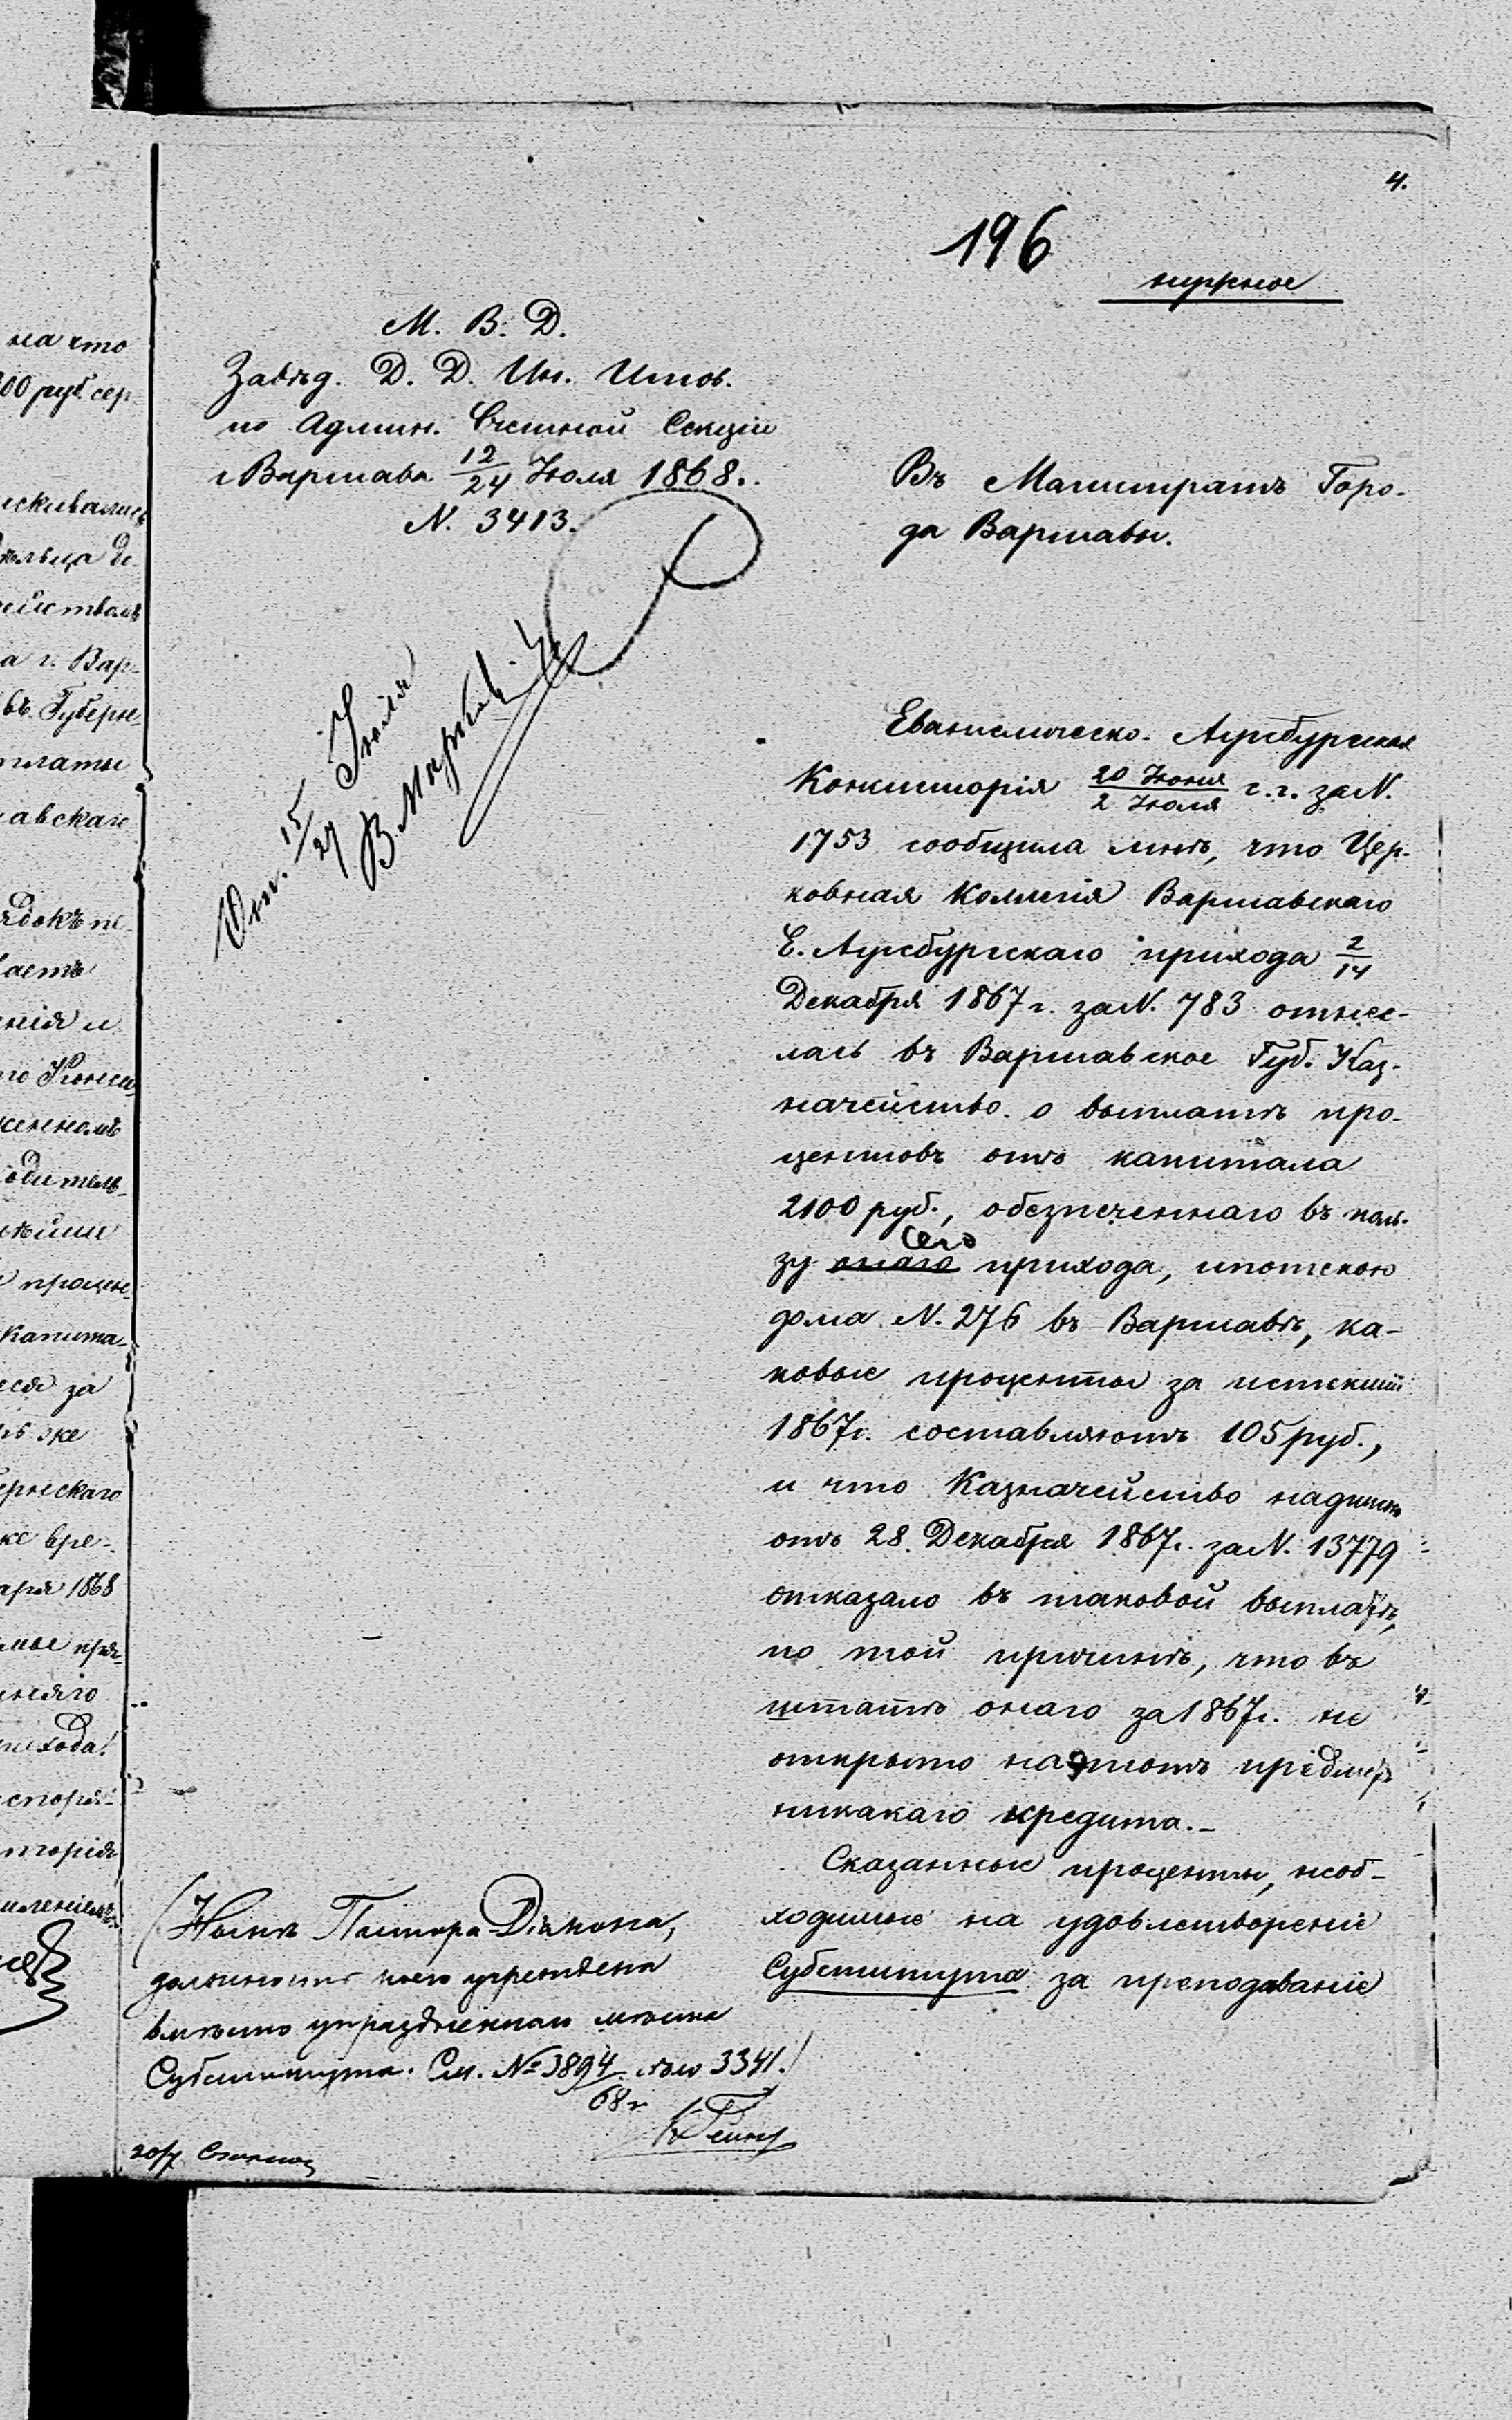 4.
196
нужное
М. В. Д.
Завѣд. Д. Д. Ин. Испов.
по Админ. Счетной Секціи
г Варшава 12/24 Іюля 1868.
N. 3413.
Въ Магистратъ Горо-
да Варшавы.
От. 15/27 Іюля
Евангелическо-Аугсбургская
Консисторія 20 Іюня/2 Іюля с. г. за N.
1753 сообщила мнѣ, что Цер-
ковная Коллегія Варшавскаго
Е. Аугсбургскаго прихода 2/14
Декабря 1867 г. за N. 783 отнес-
лась въ Варшавское Губ. Каз-
начейство о выплатѣ про-
центовъ отъ капитала
2100 руб., обезпеченнаго въ поль-
сего
зу онаго прихода, ипотекою
дома N. 276 въ Варшавѣ, ка-
ковые проценты за истекшій
1867 г. составляютъ 105 руб.,
и что Казначейство надписью
отъ 28 Декабря 1867 г. за N. 13779
отказало въ таковой выплатѣ,
по той причинѣ, что въ
штатѣ онаго за 1867 г. не
открыто на этотъ предметъ
никакаго кредита.-
Сказанные проценты, необ-
ходимые на удовлетвореніе
Субститута за преподаваніе
(Нынѣ Пастора-Діакона,
должность коего учреждена
вмѣсто упраздненнаго мѣста
Субститута. См. № 3894/68 г 3341.)
20/7
на что
00 руб. сер
а г. Вар-
въ Губерн-
платы
авскаго
нія и
Капита-
еся за
же
ернскаго
же вре-
аря 1868
няго
рихода
торія